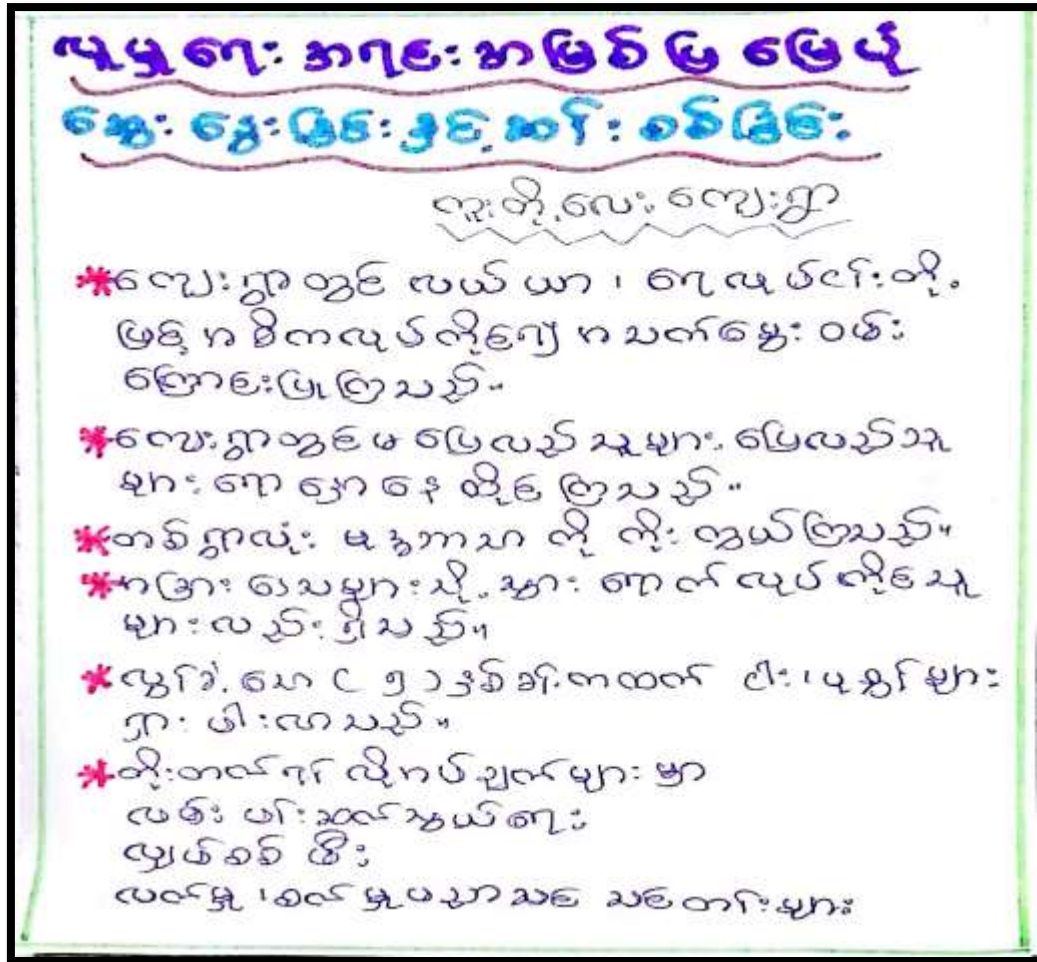 လူမှုရေး အရင်းအမြစ်ပြ မြေပုံ
ဆွေးနွေးခြင်းနှင့် ဆန်းစစ်ခြင်း
ကူးတို့လေး ကျေးရွာ
*ကျေးရွာတွင် လယ်ယာ၊ ရေလုပ်ငန်းတို့
ဖြင့် အဓိကလုပ်ကိုင်၍ အသက်မွေး ဝမ်း
ကြောင်းပြုကြသည်။
*ကျေးရွာတွင် မပြေလည်သူများ, ပြေလည်သူ
များ ရောနှောနေထိုင်ကြသည်။
*တစ်ရွာလုံး ဗုဒ္ဓဘာသာကို ကိုးကွယ်ကြသည်။
*အခြားဒေသများသို့ သွားရောက်လုပ်ကိုင်သူ
များလည်းရှိသည်။
*လွန်ခဲ့သော (၅)နှစ်ခန့်ကထက် ငါး၊ပုစွန်များ
ရှားပါးလာသည်။
*တိုးတက်ရန်လိုအပ်ချက်များမှာ
လမ်းပန်းဆက်သွယ်ရေး
လျှပ်စစ်မီး
လက်မှု၊စက်မှုပညာသင် သင်တန်းများ